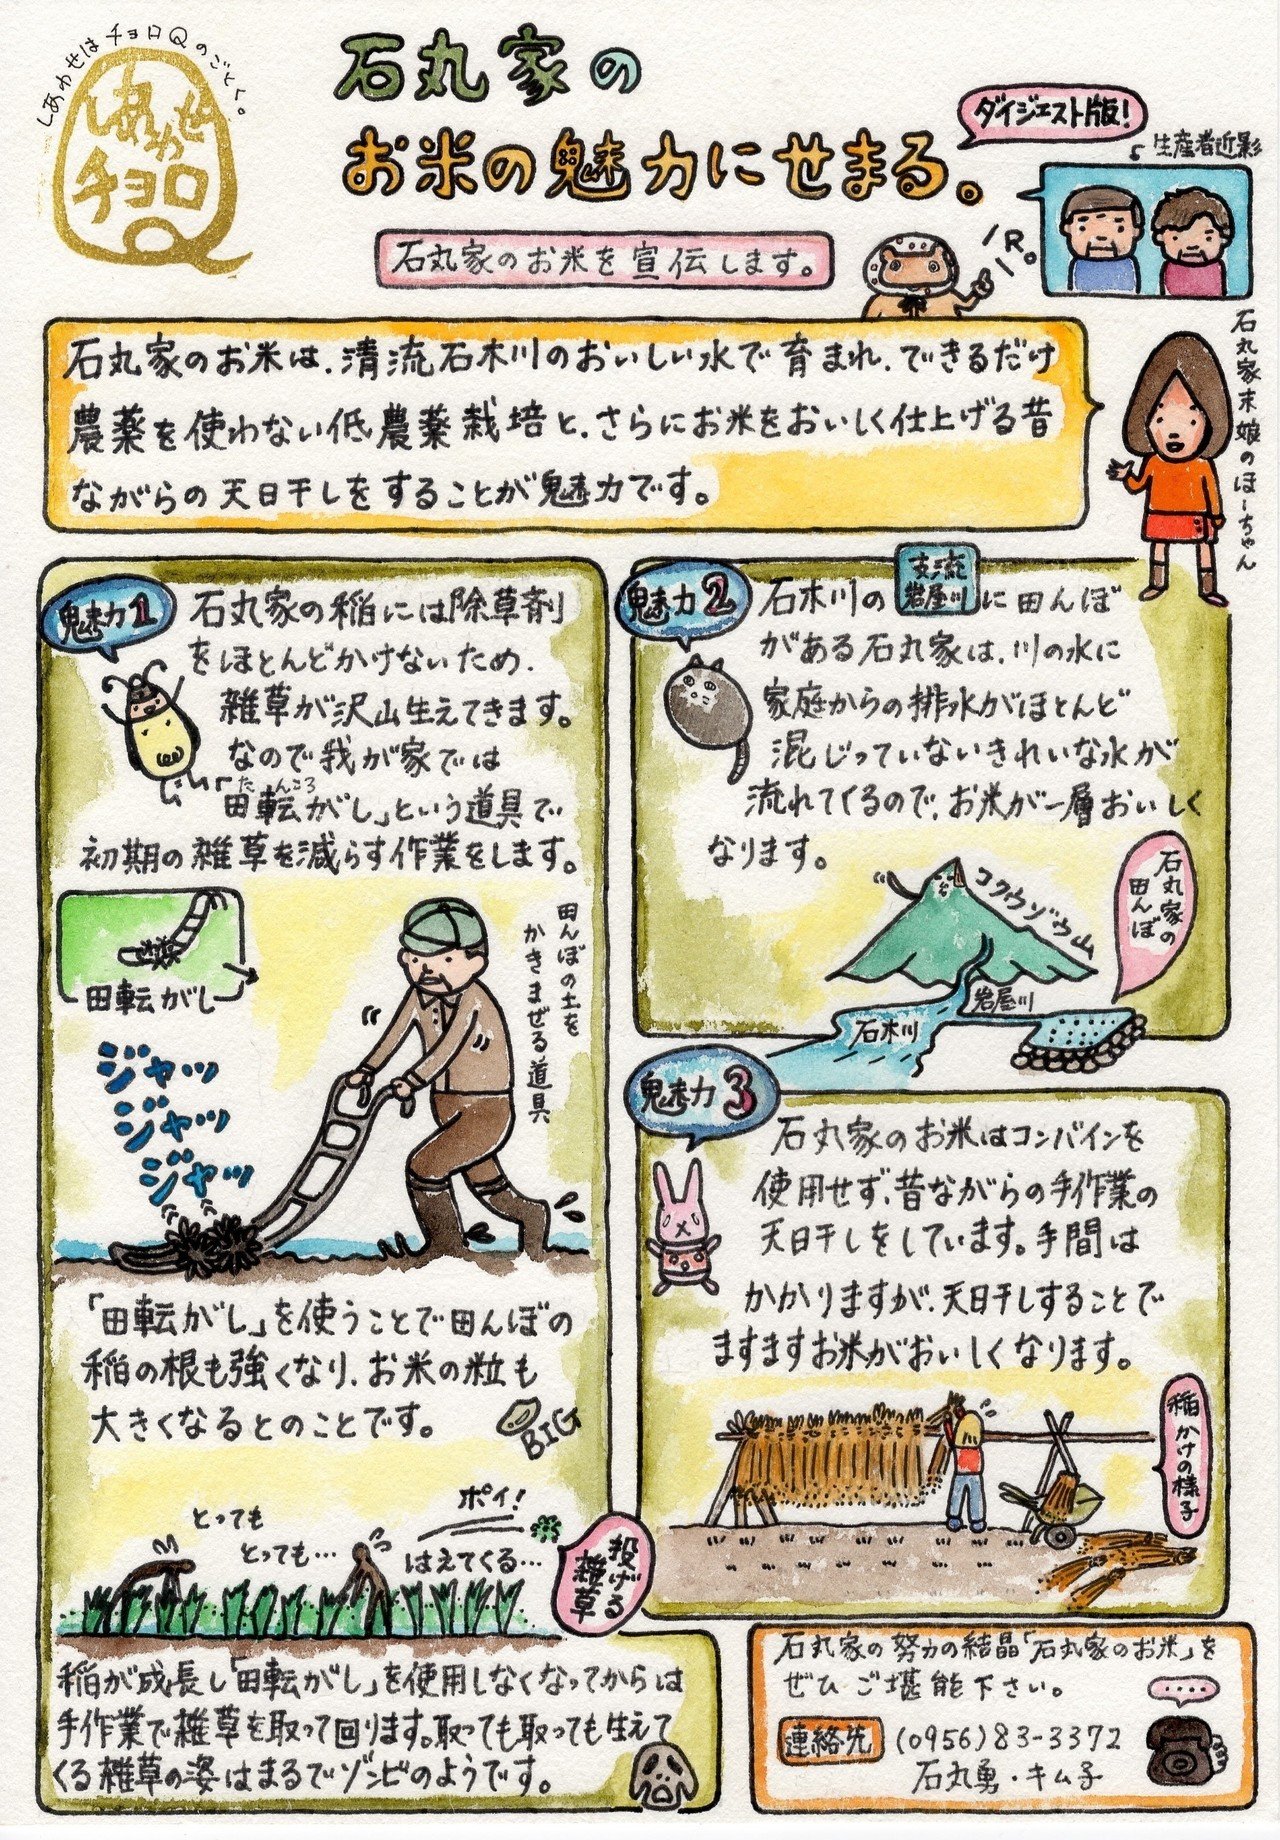 しあわせはチョロQのごとく。
しあわせ
チョロ
Q
石丸家の
お米の魅力にせまる。
ダイジェスト版!
生産者近影
石丸家のお米を宣伝します。
石丸家のお米は、清流石木川のおいしい水で育まれ、できるだけ
農薬を使わない低農薬栽培と、さらにお米をおいしく仕上げる昔
ながらの天日干しをすることが魅力です。
石丸家末娘のほーちゃん
魅力1
石丸家の稲には除草剤
をほとんどかけないため、
雑草が沢山生えてきます。
なので我が家では
たんころ
「田転がし」という道具で
初期の雑草を減らす作業をします。
田転がし
田んぼの土を
かきまぜる道具
ジャッ
ジャッ
ジャッ
「田転がし」を使うことで田んぼの
稲の根も強くなり、お米の粒も
大きくなるとのことです。
BIG
とっても
とっても…
ポイ!
はえてくる…
投げる
雑草
稲が成長し「田転がし」を使用しなくなってからは
手作業で雑草を取って回ります。取っても取っても生えて
くる雑草の姿はまるでゾンビのようです。
魅力2
石木川の
支流
岩屋川
に田んぼ
がある石丸家は、川の水に
家庭からの排水がほとんど
混じっていないきれいな水が
流れてくるので、お米が一層おいしく
なります。
コクウゾウ山
石丸家の
田んぼ
岩屋川
石木川
魅力3
石丸家のお米はコンバインを
使用せず、昔ながらの手作業の
天日干しをしています。手間は
かかりますが、天日干しすることで
ますますお米がおいしくなります。
稲かけの様子
石丸家の努力の結晶「石丸家のお米」を
ぜひご堪能下さい。
連絡先
(0956)83-3372
石丸勇・キム子